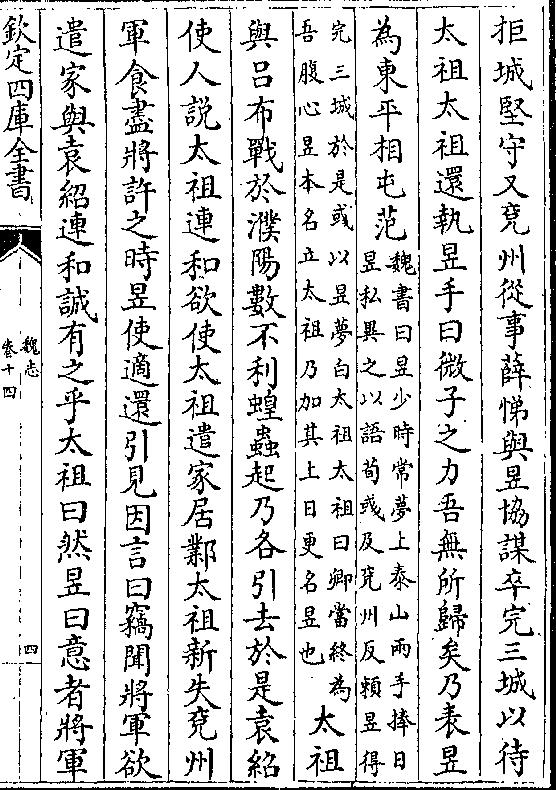 拒城堅守又兗州從事薛悌與昱協謀卒完三城以待
太祖太祖還執昱手曰微子之力吾無所歸矣乃表昱
為東平相屯范
魏書曰昱少時常夢上泰山兩手捧日
昱私異之以語荀彧及兗州反頼昱得
完三城於是彧以昱夢白太祖太祖曰卿當終為
吾腹心昱本名立太祖乃加其上日更名昱也
太祖
與吕布戰於濮陽數不利蝗蟲起乃各引去於是袁紹
使人説太祖連和欲使太祖遣家居鄴太祖新失兗州
軍食盡將許之時昱使適還引見因言曰竊聞將軍欲
遣家與袁紹連和誠有之乎太祖曰然昱曰意者將軍
欽定四庫全書
魏志
卷十四
四